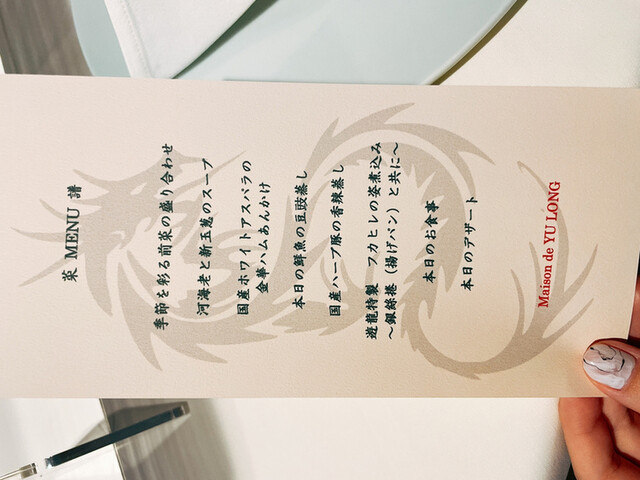 菜 MENU 譜
季節を彩る前菜の盛り合わせ
河海老と新玉葱のスープ
国産ホワイトアスパラの
金華ハムあんかけ
本日の鮮魚の豆豉蒸し
国産ハーブ豚の香辣蒸し
遊龍特製 フカヒレの姿煮込み
～銀絲捲（揚げパン）と共に～
本日のお食事
本日のデザート
Maison de YU LONG